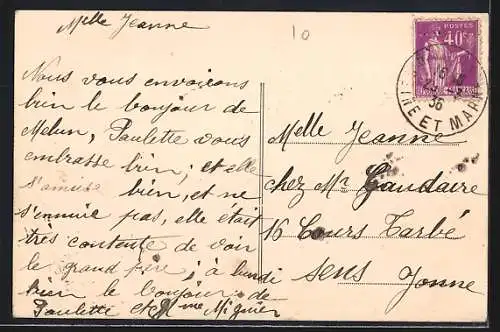 Melle Jeanne
10
Nous vous envoixons
bien le bonjour de
Melun, Paulette vous
embrasse bien; et elle
s'amuse bien, et ne
s'ennuie pas, elle était
très contente de voir
le grand père; à lundi
bien le bonjour de
Paulette et Mme Miguier
POSTES
40c
36
SEINE ET MARNE
Melle Jeanne
chez Mr Gaudaire
16 Cours Tarbé
Sens Yonne